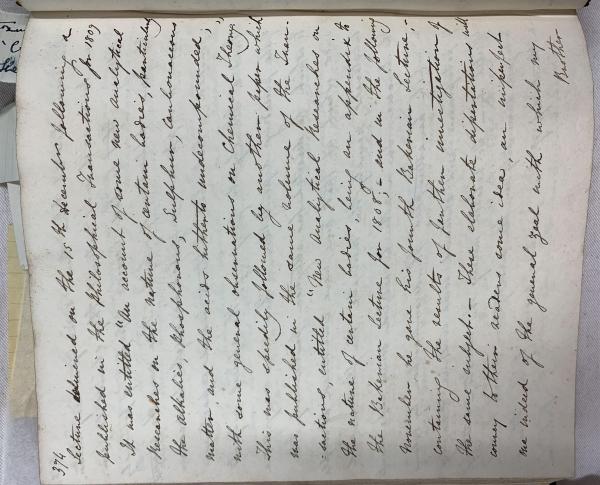 374
lecture delivered on the 15th December following &
published in the Philosophical Transactions for 1809
It was entitled "An account of some new analytical
Researches on the nature of certain bodies, particularly
the alkalies, Phosphorus, Sulphur, Carbonaceous
matter and the acids hitherto undecompounded,
with some general observations on Chemical Theory."
This was speedily followed by another paper which
was published in the same volume of the Tran-
sactions, entitled "New analytical Researches on
the nature of certain bodies, being an appendix to
the Bakerian Lecture for 1808; - and in the following
November he gave his fourth Bakerian Lecture, -
containing the results of further investigation of
the same subject. - These elaborate dissertations will
convey to their readers some idea, an imperfect
one indeed of the general zeal with which my
Brother